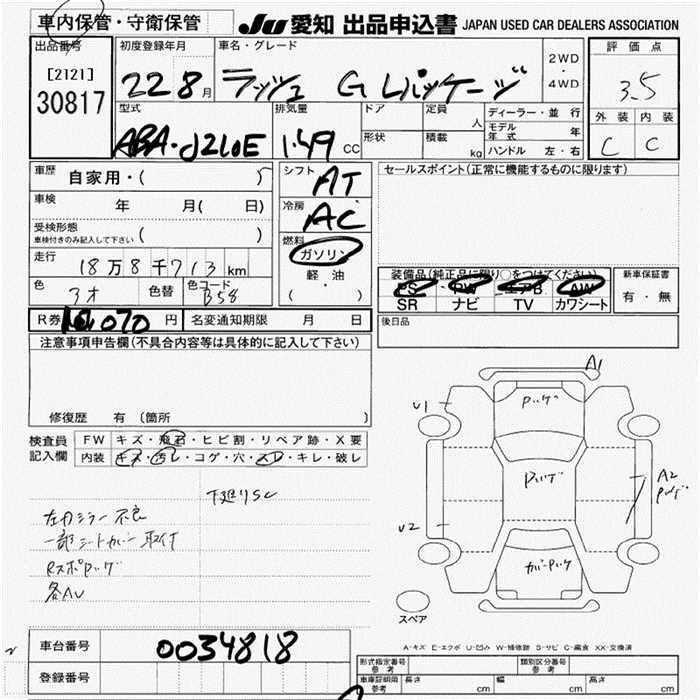 車内保管・守衛保管
JU 愛知 出品申込書 JAPAN USED CAR DEALERS ASSOCIATION
出品番号
[2121]
30817
初度登録年月
22 8月
車名・グレード
ラッシュ G Lパッケージ
2WD
・
4WD
評価点
3.5
外装 内装
C C
型式
ABA-J210E
排気量
1.49 CC
ドア
形状
定員
人
積載
kg
ディーラー・並行
モデル年式 年
ハンドル 左・右
車歴
自家用・( )
車検
年 月( 日)
受検形態
車検付きのみ記入して下さい ( )
走行
18万8千713km
色
アオ
色替
色コード
B58
シフト
AT
冷房
AC
燃料
ガソリン
軽油
( ・ )
セールスポイント(正常に機能するものに限ります)
装備品(純正品に限り○をつけてください)
PS PW エアB AW
SR ナビ TV カワシート
新車保証書
有・無
R券 070 円
名変通知期限 月 日
後日品
注意事項申告欄(不具合内容等は具体的に記入して下さい)
修復歴 有(箇所 )
検査員
記入欄
FW キズ・飛石・ヒビ割・リペア跡・X要
内装 キズ・汚レ・コゲ・穴・スレ・キレ・破レ
下廻りSC
左右ミラー不良
一部シートカバー取付
各AU
A1
U1
U2
A2
スペア
A-キズ E-エクボ U-凹み W-補修跡 S-サビ C-腐食 XX-交換済
車台番号
0034818
登録番号
形式指定番号
参考
類別区分番号
参考
車庫証明用
参考
長さ cm
幅 cm
高さ cm